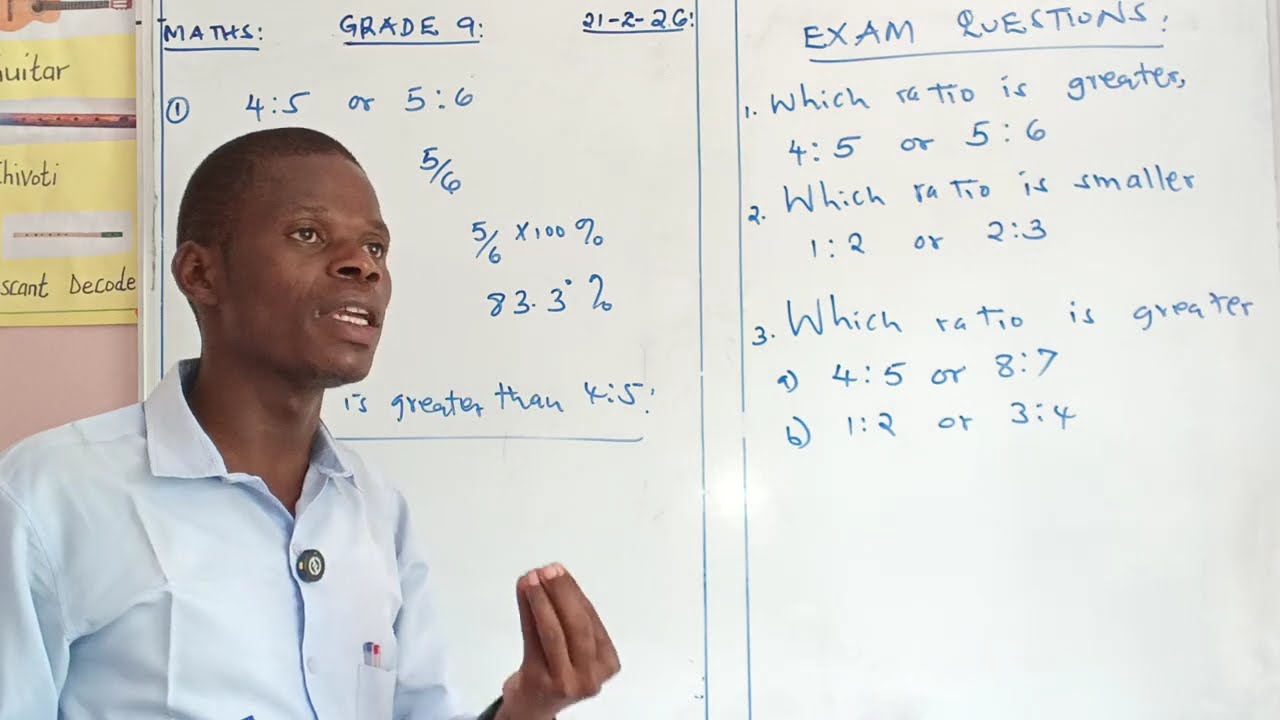 uitar
hivoti
scant Decode
MATHS: GRADE 9: 21-2-26:
① 4:5 or 5:6
5/6
5/6 x100 %
83.3° %
is greater than 4:5:
EXAM QUESTIONS:
1. Which ratio is greater,
4:5 or 5:6
2. Which ratio is smaller
1:2 or 2:3
3. Which ratio is greater
a) 4:5 or 8:7
b) 1:2 or 3:4